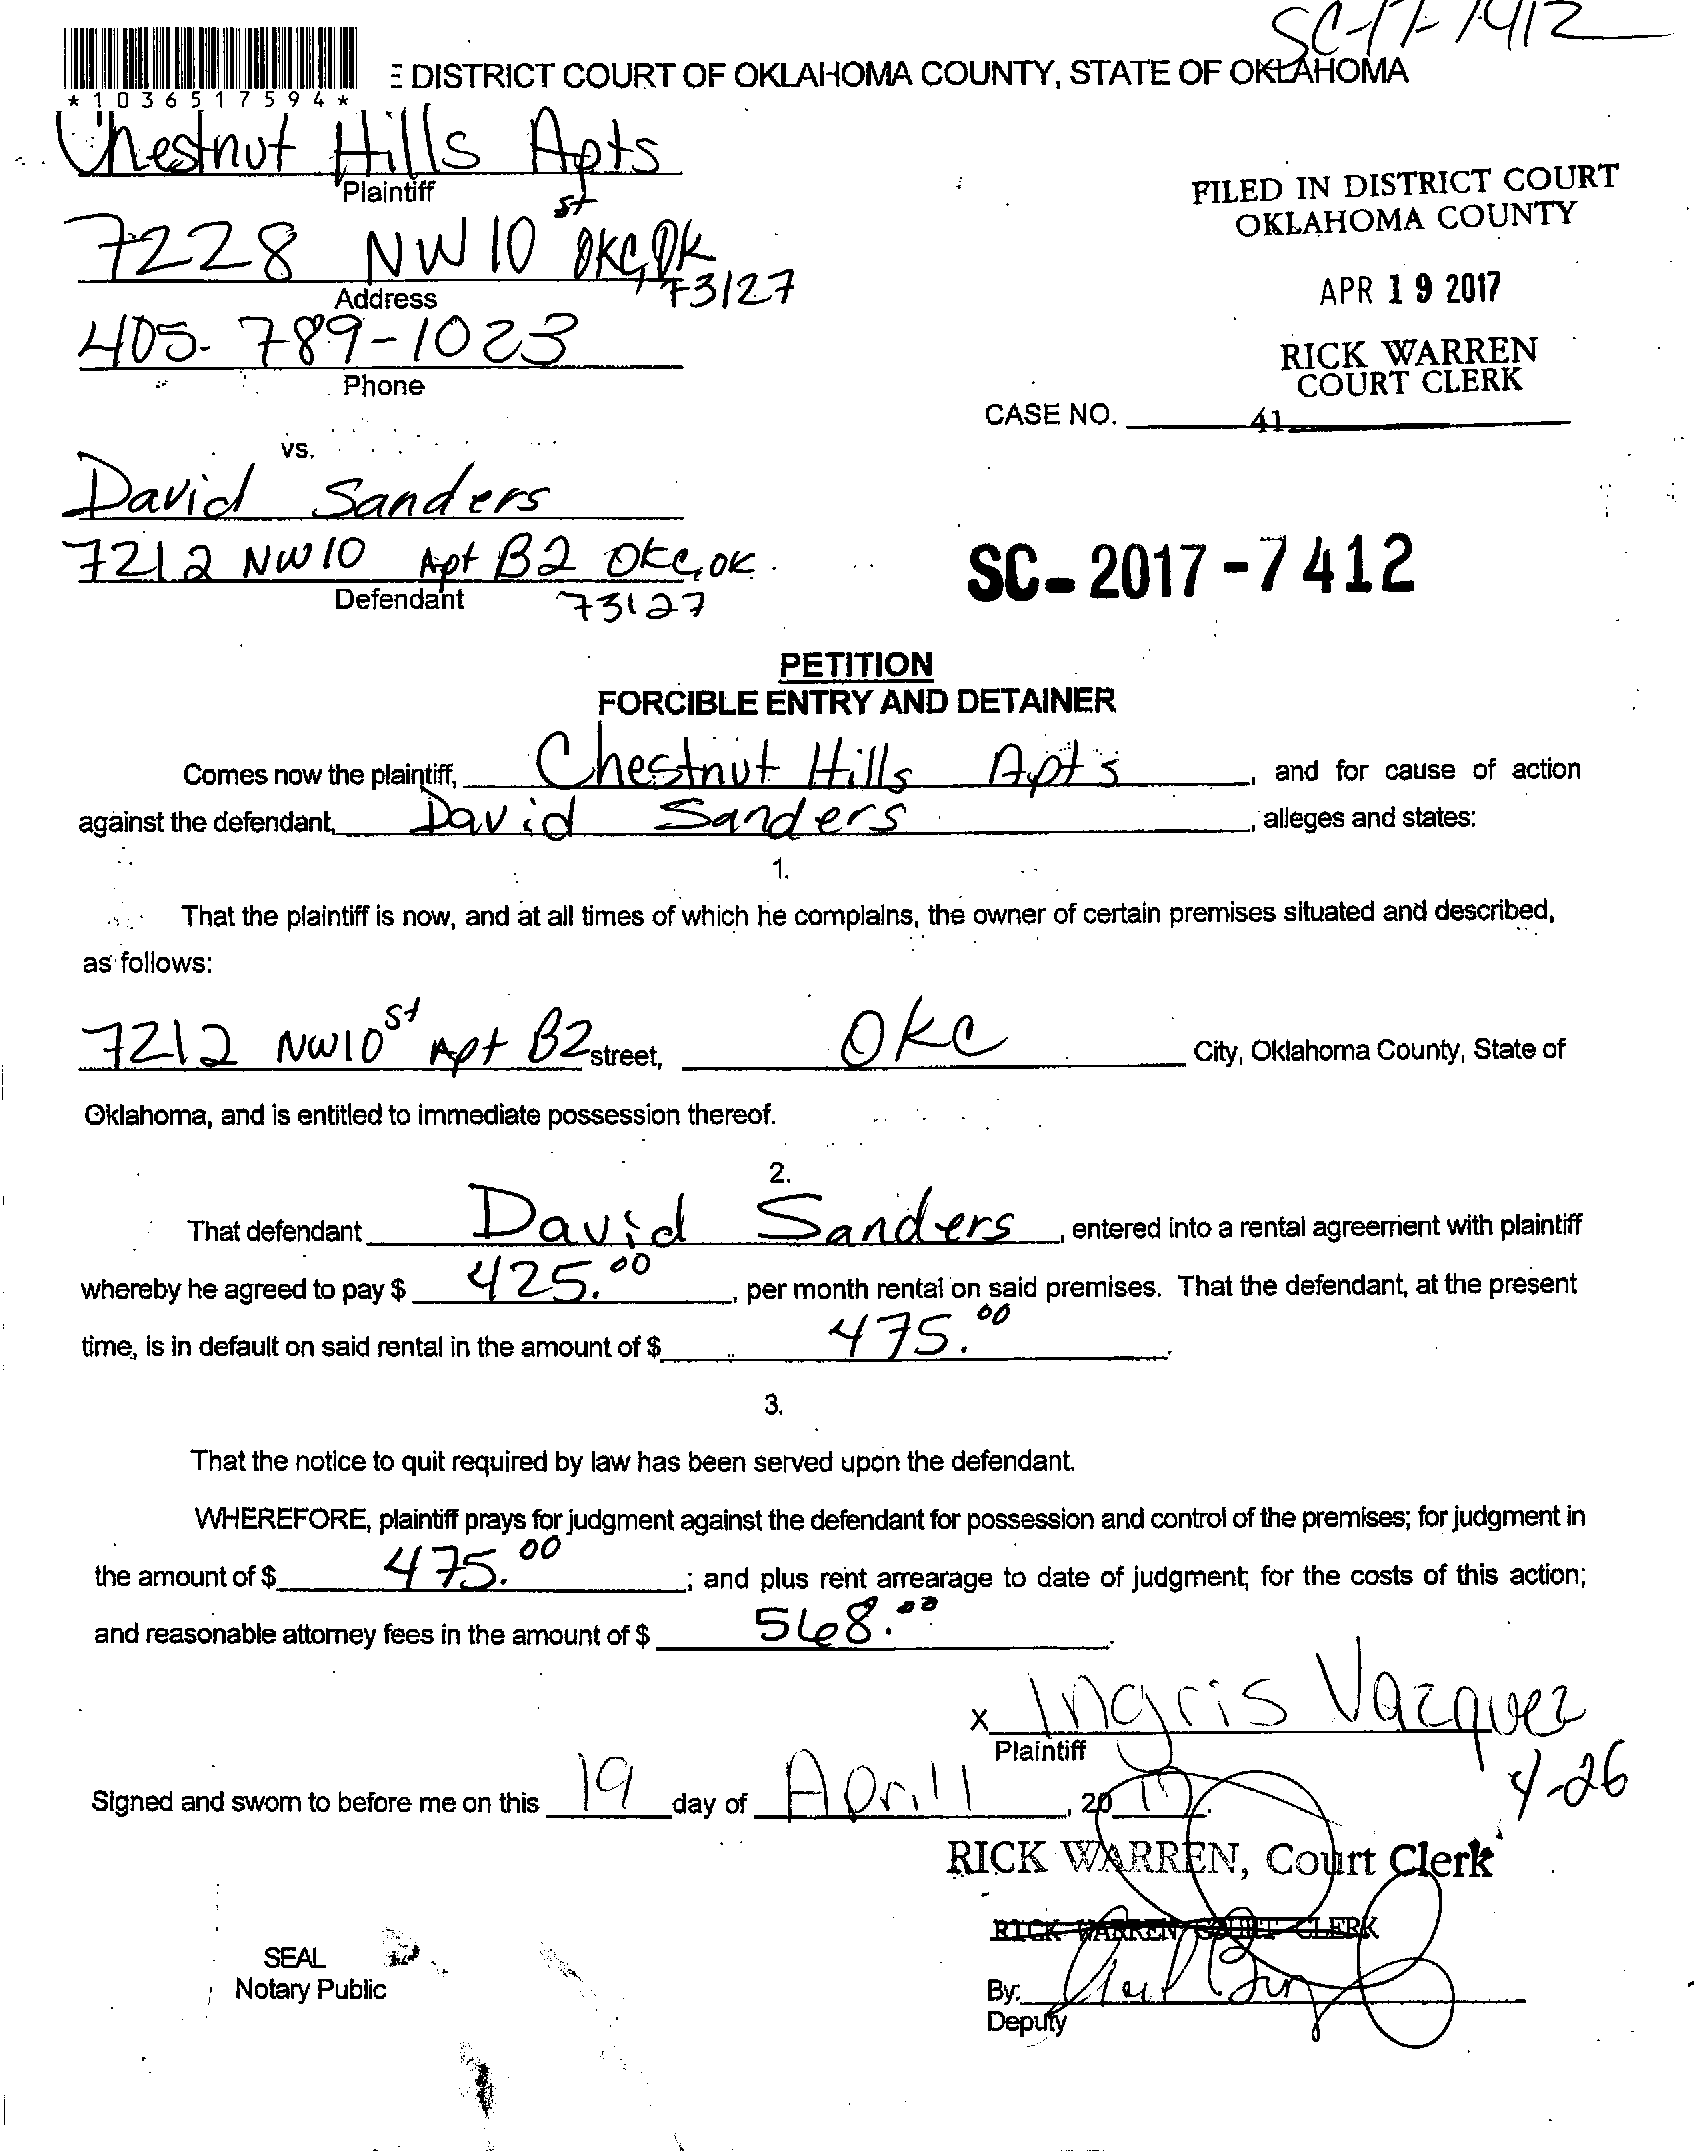 SC-17-7412
DISTRICT COURT OF OKLAHOMA COUNTY, STATE OF OKLAHOMA
*1036517594*
Chestnut Hills Apts
Plaintiff
7228 NW 10st OKC, OK
73127
Address
405-789-1023
Phone
FILED IN DISTRICT COURT
OKLAHOMA COUNTY
APR 19 2017
RICK WARREN
COURT CLERK
CASE NO. 41
vs.
David Sanders
7212 NW10 Apt B2 OKC, OK.
Defendant 73127
SC-2017-7412
PETITION
FORCIBLE ENTRY AND DETAINER
Comes now the plaintiff, Chestnut Hills Apt's, and for cause of action
against the defendant, David Sanders, alleges and states:
1.
That the plaintiff is now, and at all times of which he complains, the owner of certain premises situated and described,
as follows:
7212 NW10st Apt B2 street, OKC City, Oklahoma County, State of
Oklahoma, and is entitled to immediate possession thereof.
2.
That defendant David Sanders, entered into a rental agreement with plaintiff
whereby he agreed to pay $ 425.00, per month rental on said premises. That the defendant, at the present
time, is in default on said rental in the amount of $ 475.00.
3.
That the notice to quit required by law has been served upon the defendant.
WHEREFORE, plaintiff prays for judgment against the defendant for possession and control of the premises; for judgment in
the amount of $ 475.00; and plus rent arrearage to date of judgment; for the costs of this action;
and reasonable attorney fees in the amount of $ 568.00.
x Ingris Vazquez
Plaintiff
4-26
Signed and sworn to before me on this 19 day of April, 2017.
RICK WARREN, Court Clerk
RICK WARREN COURT CLERK
SEAL
Notary Public
By:
Deputy